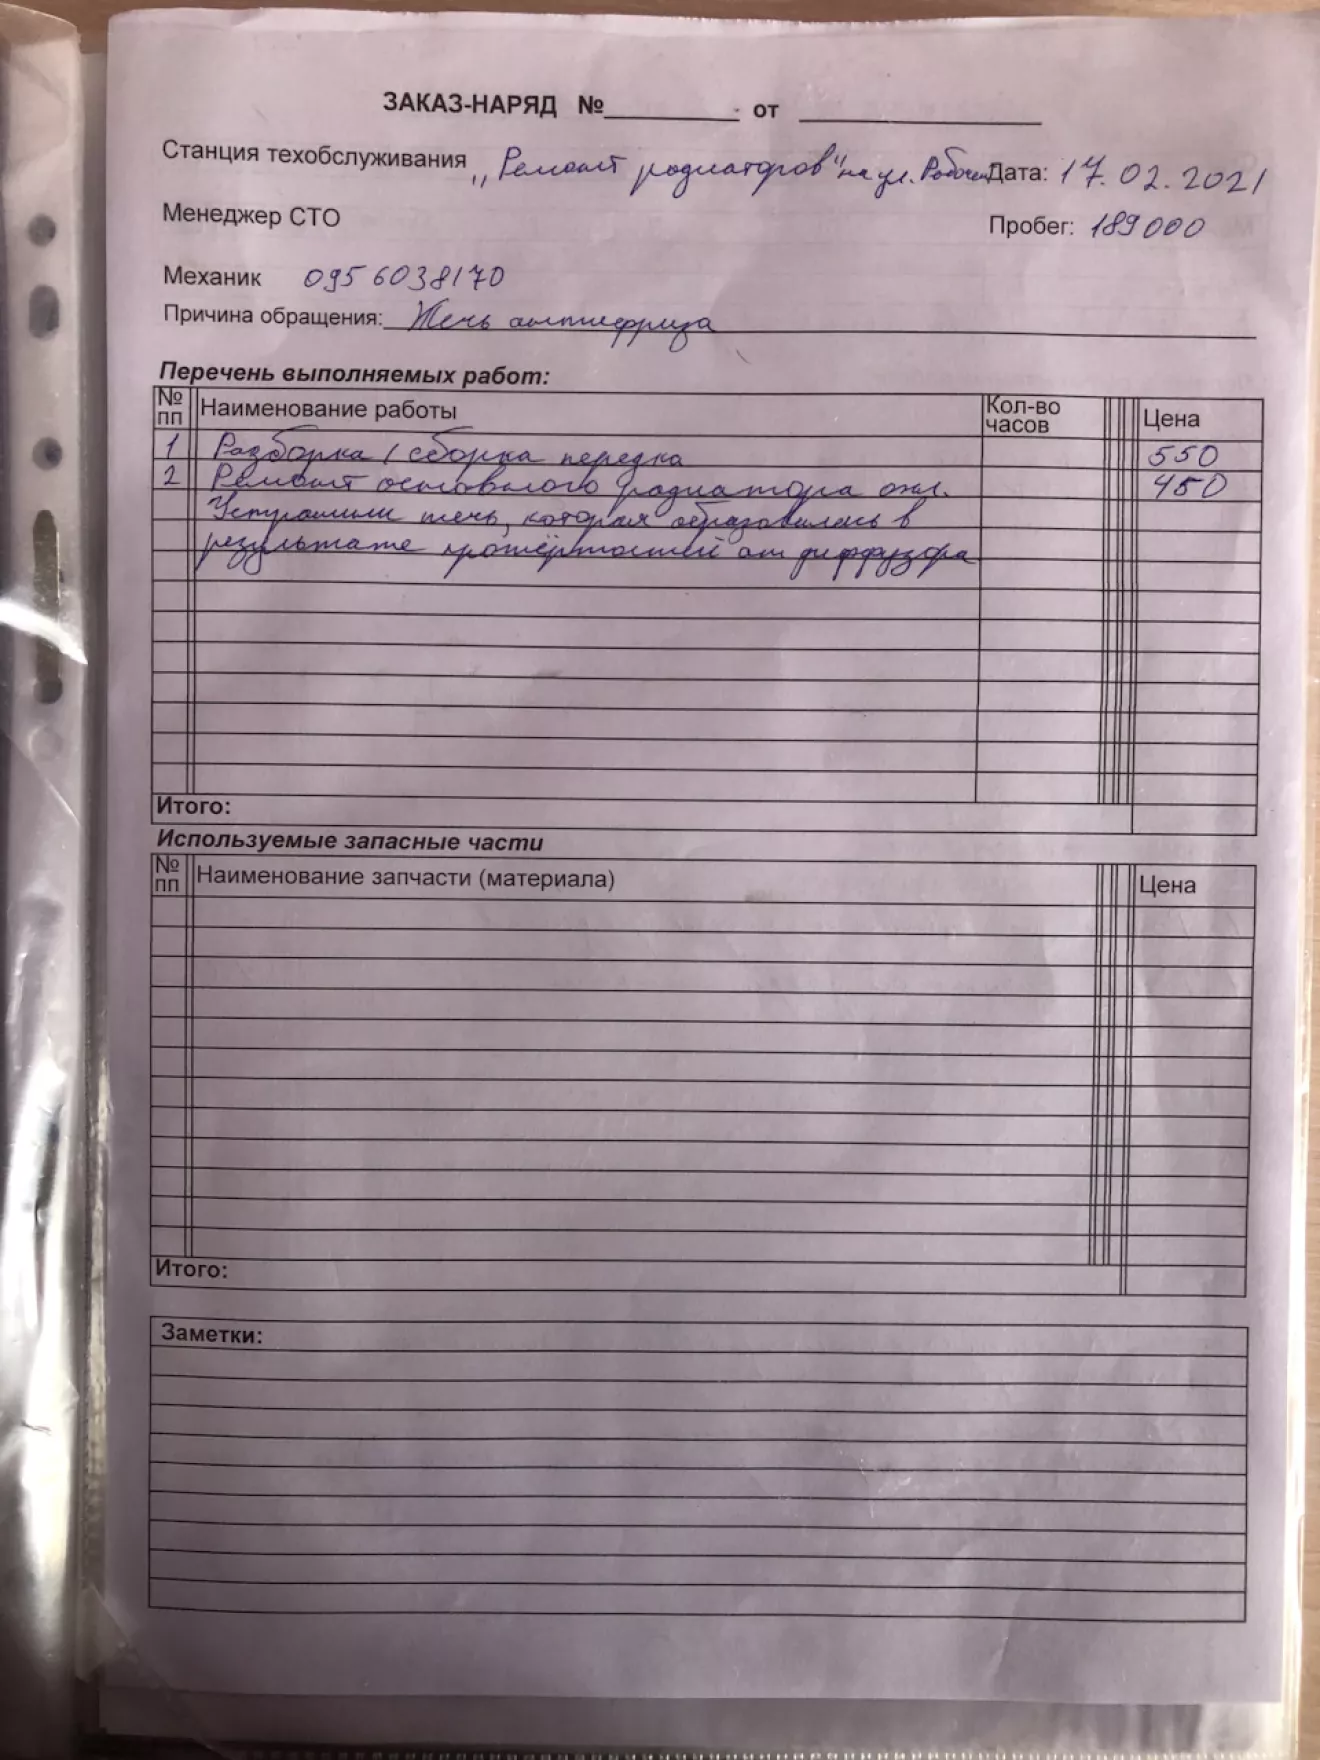 ЗАКАЗ-НАРЯД №________ от ________
Станция техобслуживания „Ремонт радиаторов" на ул. Рабочей Дата: 17.02.2021
Менеджер СТО Пробег: 189000
Механик 0956038170
Причина обращения: Течь антифриза
Перечень выполняемых работ:
№ пп Наименование работы Кол-во часов Цена
1 Разборка / сборка передка 550
2 Ремонт основного радиатора охл. 450
Устранили течь, которая образовалась в
результате протёртостей от диффузора
Итого:
Используемые запасные части
№ пп Наименование запчасти (материала) Цена
Итого:
Заметки: